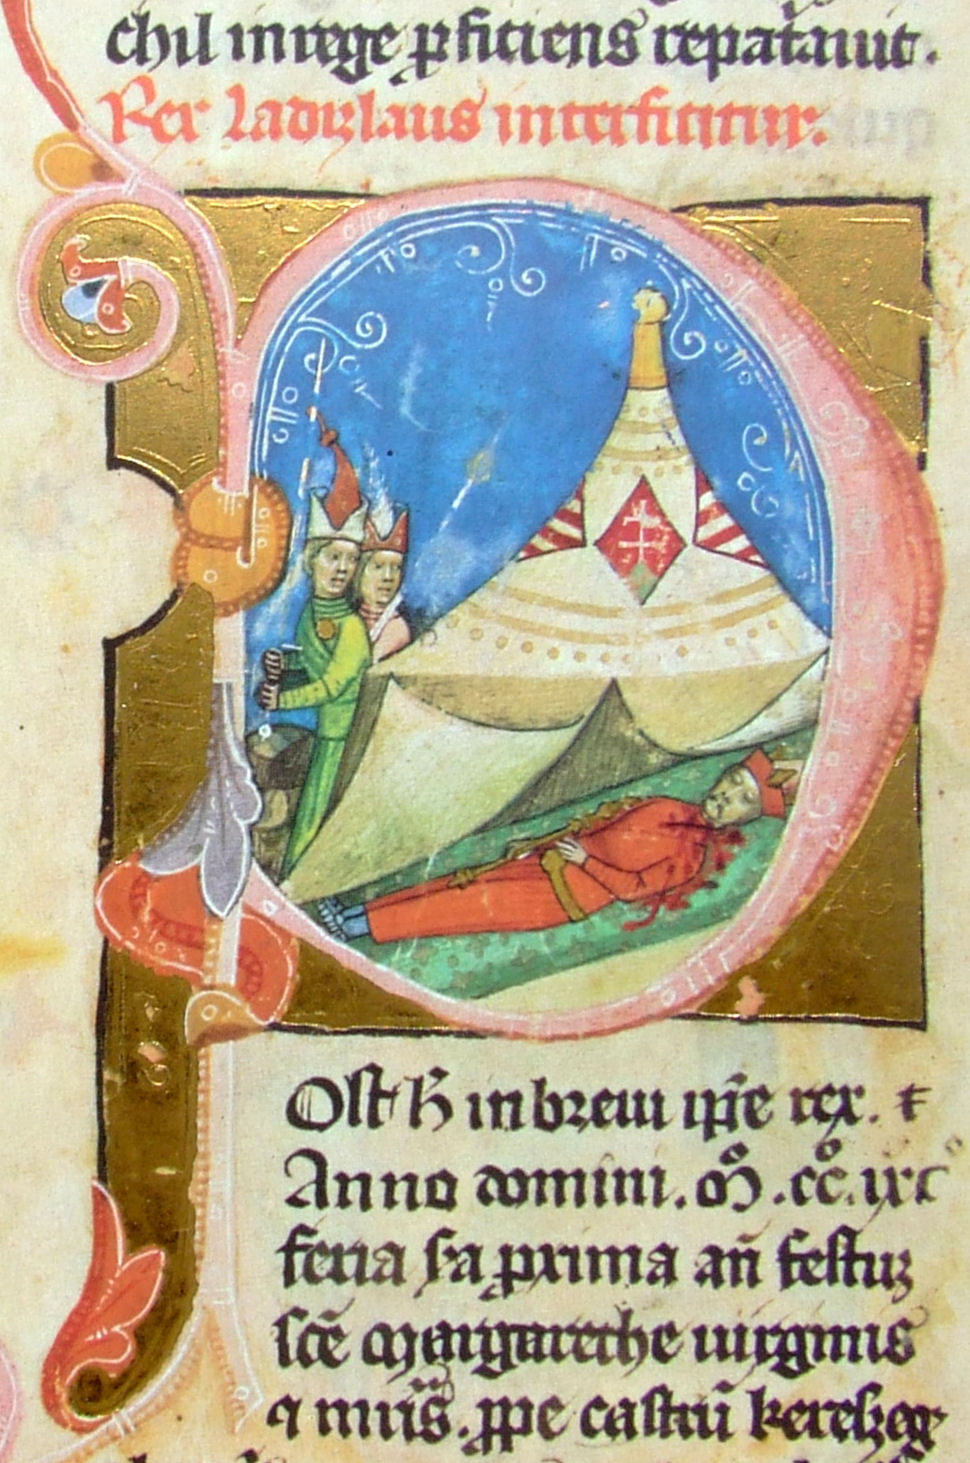 chil in rege ꝑficiens repat̄auit.
Rex ladizlaus interficitur.
Post h̄ in breui ip̄e rex. ⁊
Anno domini. Mͦ. ccͦ. lxc
feria s̄a proxima an̄ festuꝫ
sc̄e Margarethe uirginis
⁊ prope castrū kereszeg